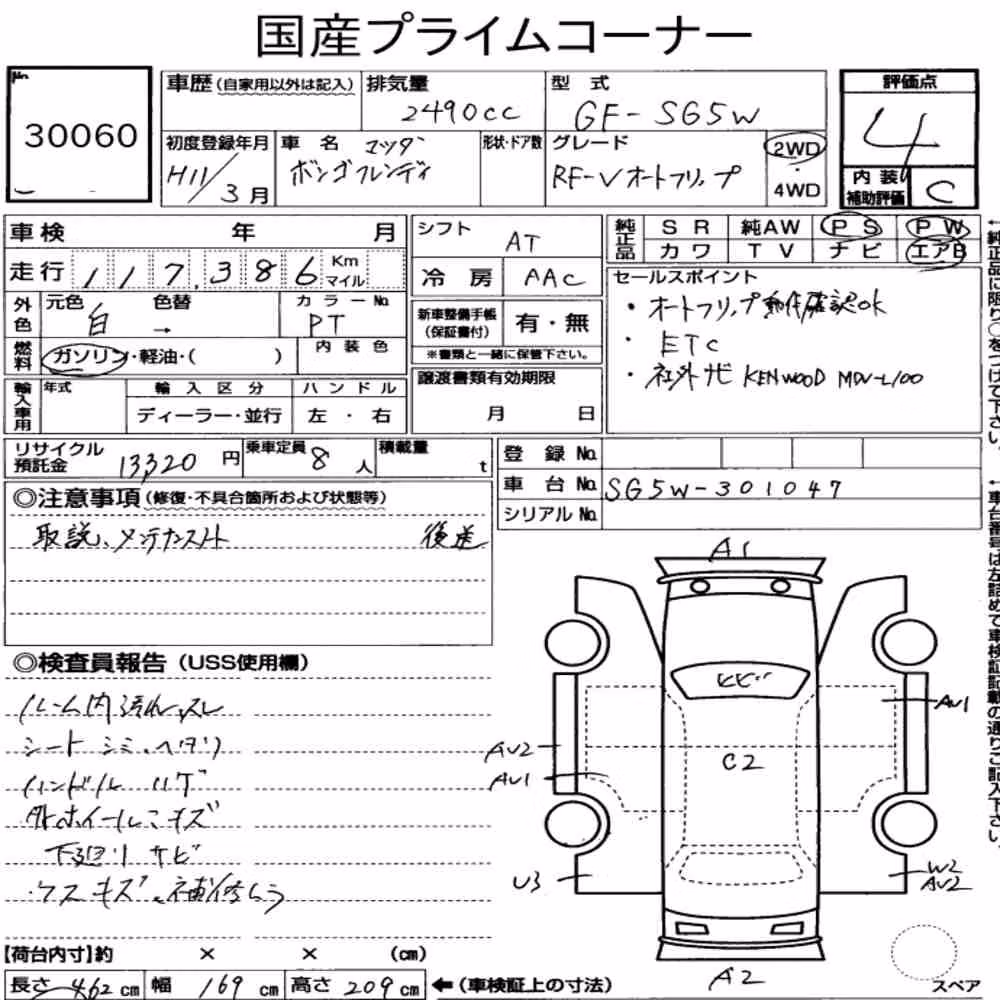 国産プライムコーナー
No.
30060
車歴(自家用以外は記入)
排気量
2490cc
型式
GF-SG5W
評価点
4
内装
補助評価
C
初度登録年月
H11/3月
車名
マツダ
ボンゴフレンディ
形状・ドア数
グレード
RF-Vオートフリップ
2WD
・
4WD
車検 年 月
走行 117,386 Km
マイル
シフト
AT
冷房 AAC
純正品
SR 純AW PS PW
カワ TV ナビ エアB
セールスポイント
・オートフリップ動作確認OK
・ETC
・社外ナビ KENWOOD MDV-L100
外色
元色 色替
白 →
カラーNo.
PT
燃料
ガソリン・軽油・( )
内装色
新車整備手帳
(保証書付)
有・無
※書類と一緒に保管下さい。
輸入車用
年式
輸入区分
ディーラー・並行
ハンドル
左・右
譲渡書類有効期限
月 日
リサイクル
預託金
13,320円
乗車定員
8人
積載量
t
登録No.
車台No. SG5W-301047
シリアルNo.
◎注意事項(修復・不具合箇所および状態等)
取説、メンテナンスノート 後送
◎検査員報告(USS使用欄)
ルーム内汚れ、スレ
シート シミ、ヘタリ
ハンドル ハゲ
外ホイールこキズ
下廻りサビ
ウスキズ、補修ムラ
A1
ヒビ
AV1
AV2
AV1
C2
U3
W2
AV2
A2
スペア
【荷台内寸】約 × × (cm)
長さ 462cm 幅 169cm 高さ 209cm
←(車検証上の寸法)
←純正品に限り○をつけて下さい。
←車台番号は左詰めで車検証記載の通りご記入下さい。